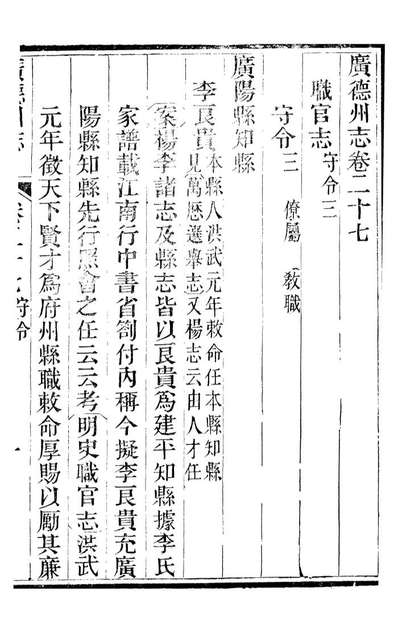 廣德州志卷二十七
職官志守令三
守令三 僚屬 教職
廣陽縣知縣
李良貴本縣人洪武元年敕命任本縣知縣
見萬歷選舉志又楊志云由人才任
案楊李諸志及縣志皆以良貴爲建平知縣據李氏
家譜載江南行中書省劄付內稱今擬李良貴充廣
陽縣知縣先行照會之任云云考明史職官志洪武
元年徵天下賢才爲府州縣職敕命厚賜以勵其廉
廣德州志
卷二十七守令
一